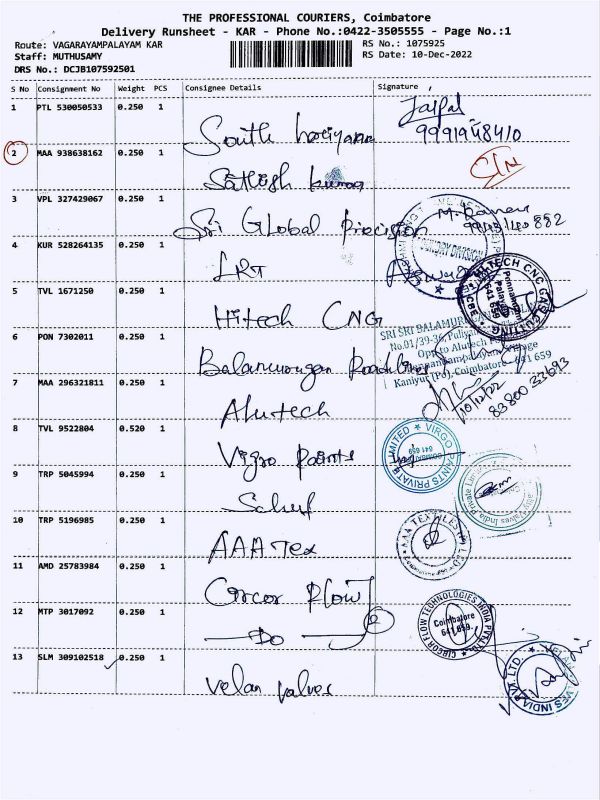 THE PROFESSIONAL COURIERS, Coimbatore
Delivery Runsheet - KAR - Phone No.:0422-3505555 - Page No.:1
Route: VAGARAYAMPALAYAM KAR
RS No.: 1075925
Staff: MUTHUSAMY
RS Date: 10-Dec-2022
DRS No.: DCJB107592501
S No Consignment No Weight PCS Consignee Details Signature
1 PTL 530050533 0.250 1
South hariyana
Jaipal
9991948410
2 MAA 938638162 0.250 1
Sathish kumar
3 VPL 327429067 0.250 1
Sri Global Precision
4 KUR 528264135 0.250 1
LRT
5 TVL 1671250 0.250 1
Hitech CNG
HITECH CNC GAS CUTTING
Ponnandam
Palayam
641 659
CBE
6 PON 7302011 0.250 1
Balamurugan
SRI SRI BALAMURUGAN
No.01/39-36,
Opp. to Alutech
Village
Kaniyur (Po), Coimbatore - 641 659
7 MAA 296321811 0.250 1
Alutech
10/12/22
83800 33693
8 TVL 9522804 0.520 1
Virgo Paints
VIRGO PAINTS PRIVATE LIMITED
COIMBATORE
641 659
9 TRP 5045994 0.250 1
Valves India Private Limited
10 TRP 5196985 0.250 1
AAA Tex
AAA TEXTILES (P) LTD
11 AMD 25783984 0.250 1
Circor Flow
12 MTP 3017092 0.250 1
Do
2
CIRCOR FLOW TECHNOLOGIES INDIA PVT. LTD.
Coimbatore
641 659.
13 SLM 309102518 0.250 1
Velan valves
VELAN VALVES INDIA PVT. LTD.